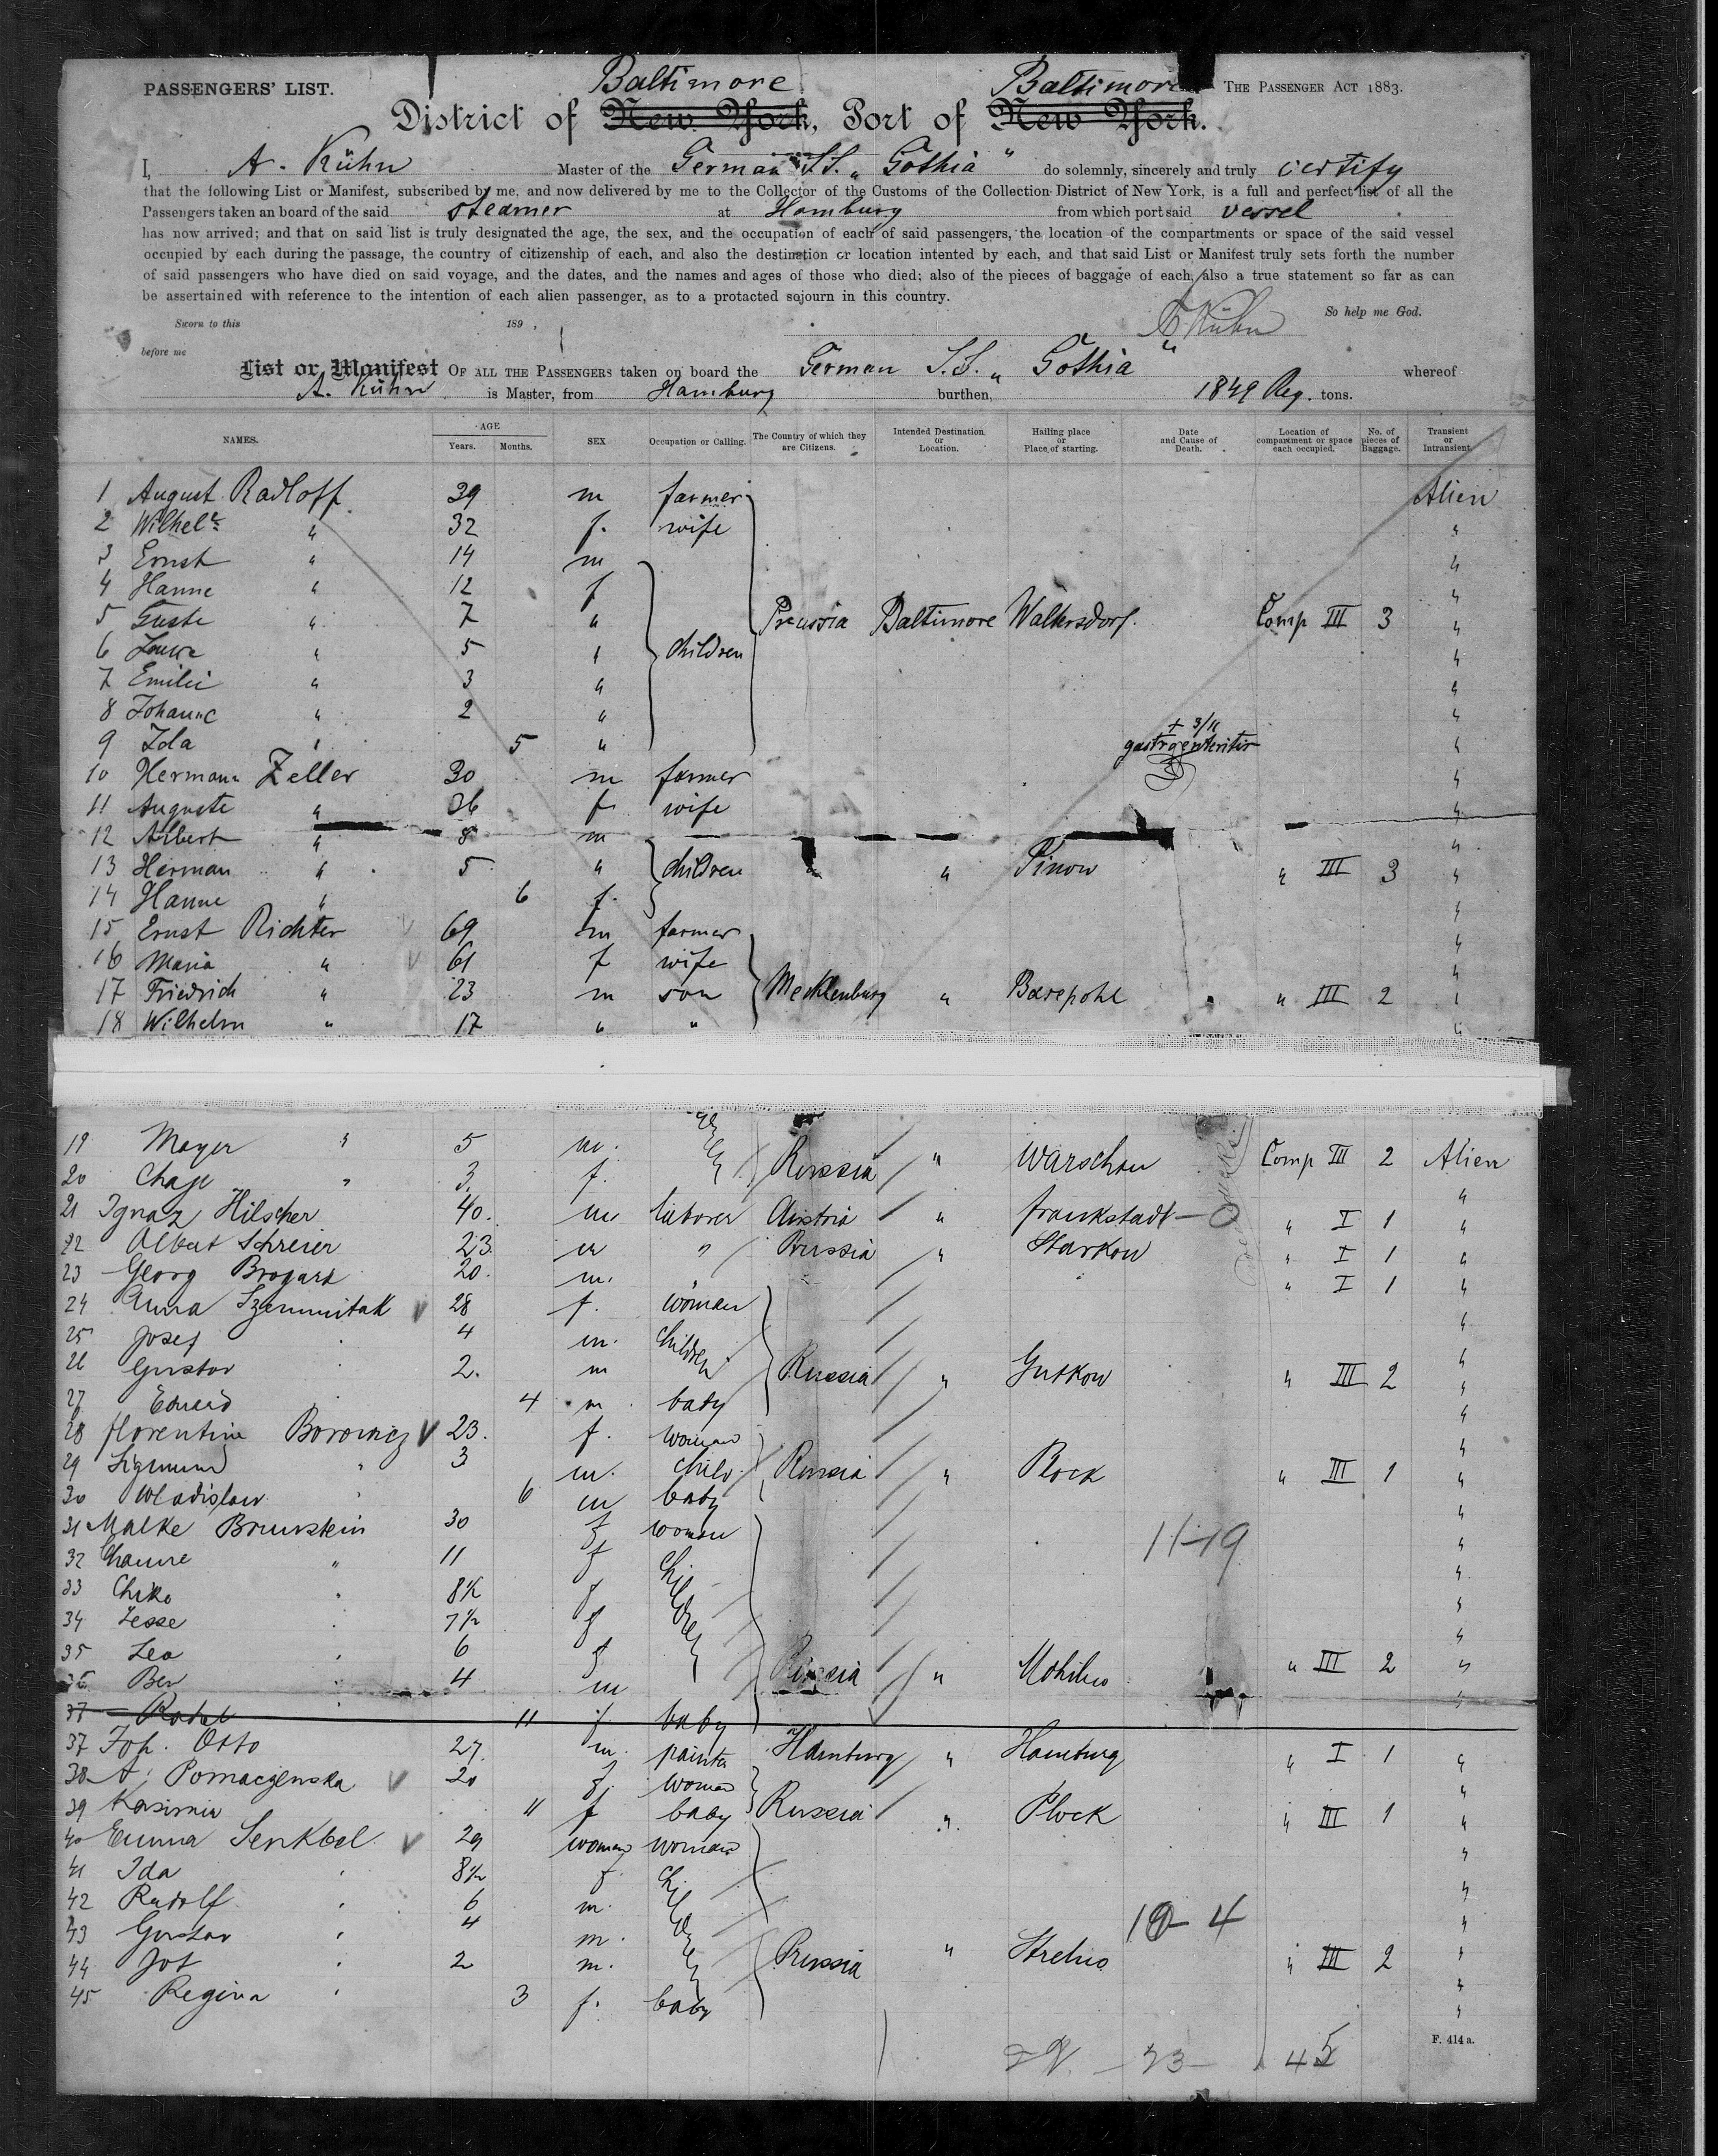 PASSENGERS' LIST.
Baltimore Baltimore THE PASSENGER ACT 1883.
District of New York, Port of New York.
I, A. Kühn Master of the German S.S. „Gothia" do solemnly, sincerely and truly certify
that the following List or Manifest, subscribed by me, and now delivered by me to the Collector of the Customs of the Collection District of New York, is a full and perfect list of all the
Passengers taken an board of the said steamer at Hamburg from which port said vessel
has now arrived; and that on said list is truly designated the age, the sex, and the occupation of each of said passengers, the location of the compartments or space of the said vessel
occupied by each during the passage, the country of citizenship of each, and also the destination or location intented by each, and that said List or Manifest truly sets forth the number
of said passengers who have died on said voyage, and the dates, and the names and ages of those who died; also of the pieces of baggage of each, also a true statement so far as can
be assertained with reference to the intention of each alien passenger, as to a protacted sojourn in this country.
Sworn to this 189 , A. Kühn So help me God.
before me
List or Manifest OF ALL THE PASSENGERS taken on board the German S.S. „Gothia" whereof
A. Kühn is Master, from Hamburg burthen, 1849 Reg. tons.
NAMES. AGE Years. Months. SEX Occupation or Calling. The Country of which they are Citizens. Intended Destination or Location. Hailing place or Place of starting. Date and Cause of Death. Location of compartment or space each occupied. No. of pieces of Baggage. Transient or Intransient.
1 August Radloff 39 m farmer Alien
2 Wilhel " 32 f. wife "
3 Ernst " 14 m "
4 Hanne " 12 f "
5 Guste " 7 " Prussia Baltimore Waltersdorf. Comp III 3 "
6 " 5 " children "
7 Emilie " 3 " "
8 Johanne " 2 " "
9 Ida " 5 " + 3/11 gastroenteritis "
10 Hermann Zeller 30 m farmer "
11 Auguste " 36 f. wife "
12 Albert " 8 m "
13 Herman " 5 " children " " Pinow " III 3 "
14 Hanne " 6 f. "
15 Ernst Richter 69 m farmer "
16 Maria " 61 f wife "
17 Friedrich " 23 m son Mecklenburg " Barepohl " III 2 "
18 Wilhelm " 17 " " "
19 Mayer " 5 m. Russia " Warschau Comp III 2 Alien
20 Chaje " 3 f. "
21 Ignaz Hilscher 40. m laborer Austria " Frankstadt " I 1 "
22 Albert Schreier 23 m " Prussia " Starkow " I 1 "
23 Georg 20. m. " I 1 "
24 Anna 28 f. woman "
25 Josef 4 m. children "
26 Gustav 2. m Russia " Gutkow " III 2 "
27 Eduard 4 m. baby "
28 Florentine Borowicz 23. f. woman "
29 Sigmund " 3 m. child. Russia " " III 1 "
30 Wladislaw 6 m baby "
31 Malke Brunstein 30 f woman "
32 Channe " 11 f children 11-19 "
33 Chike 8½ f "
34 Zesse 7½ f "
35 Lea 6 f Russia " " III 2 "
36 Ber 4 m "
37 Rachel 11 f. baby
37 Joh. Otto 27. m. painter Hamburg " Hamburg " I 1 "
38 A. Pomaczenska 20 f. woman "
39 Kasimir 11 f baby Russia " Plock " III 1 "
40 Emma Senkbel 29 woman woman "
41 Ida 8½ f. children "
42 Rudolf 6 m. "
43 Gustav 4 m. 19- 4 "
44 Jos 2 m. Prussia " Strelno " III 2 "
45 Regina 3 f. baby "
F. 414 a.
22 - 23 - 45